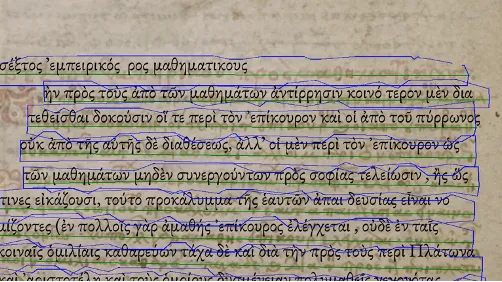 σέξτος ʼεμπειρικός ρος μαθηματικους
ὴν πρὸς τοὺς ἀπὸ τῶν μαθημάτων ἀντίρρησιν κοινό τερον μὲν δια
τεθεῖσθαι δοκοῦσιν οἵ τε περὶ τὸν ʼεπίκουρον καὶ οἱ ἀπὸ τοῦ πύρρωνος
οὐκ ἀπὸ τῆς αὐτῆς δὲ διαθέσεως, ἀλλʼ οἱ μὲν περὶ τὸν ʼεπίκουρον ὡς
τῶν μαθημάτων μηδὲν συνεργούντων πρὸς σοφίας τελείωσιν , ἤς ὥς
τινες εἰκάζουσι, τοῦτο προκάλυμμα τῆς ἑαυτῶν ἀπαι δευσίας εἶναι νο
μίζοντες (ἐν πολλοῖς γὰρ ἀμαθὴς ἐπίκουρος ἐλέγχεται , οὐδὲ ἐν ταῖς
κοιναῖς ὁμιλίαις καθαρεύων τάχα δὲ καὶ διὰ τὴν πρὸς τοὺς περὶ Πλάτωνα
καὶ ἀριστοτέλη καὶ τοὺς ὁμοίους δυσμένειαν πολυμαθεῖς γεγονότας